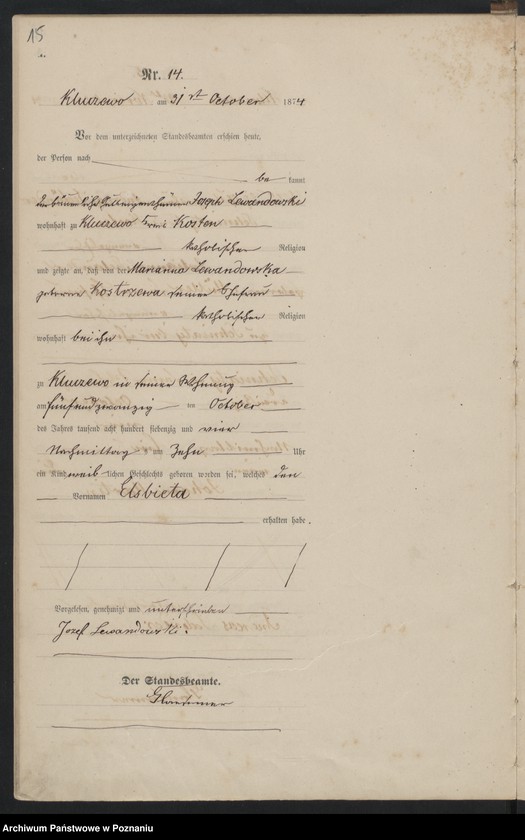 15
Nr. 14.
Kluczewo am 31ten October 1874
Vor dem unterzeichneten Standesbeamten erschien heute,
der Person nach
be kannt
der Joseph Lewandowski
wohnhaft zu Kluczewo Kreis Kosten
katholischer Religion
und zeigte an, daß von der Marianna Lewandowska
geborene Kostrzewa seiner Ehefrau
katholischer Religion
wohnhaft bei ihm
zu Kluczewo in seiner Wohnung
am fünfundzwanzig ten October
des Jahres tausend acht hundert siebenzig und vier
Nachmittag um Zehn Uhr
ein Kind weib lichen Geschlechts geboren worden sei, welches den
Vornamen Elsbieta
erhalten habe.
Vorgelesen, genehmigt und unterschrieben
Jozef Lewandowski.
Der Standesbeamte.
Archiwum Państwowe w Poznaniu